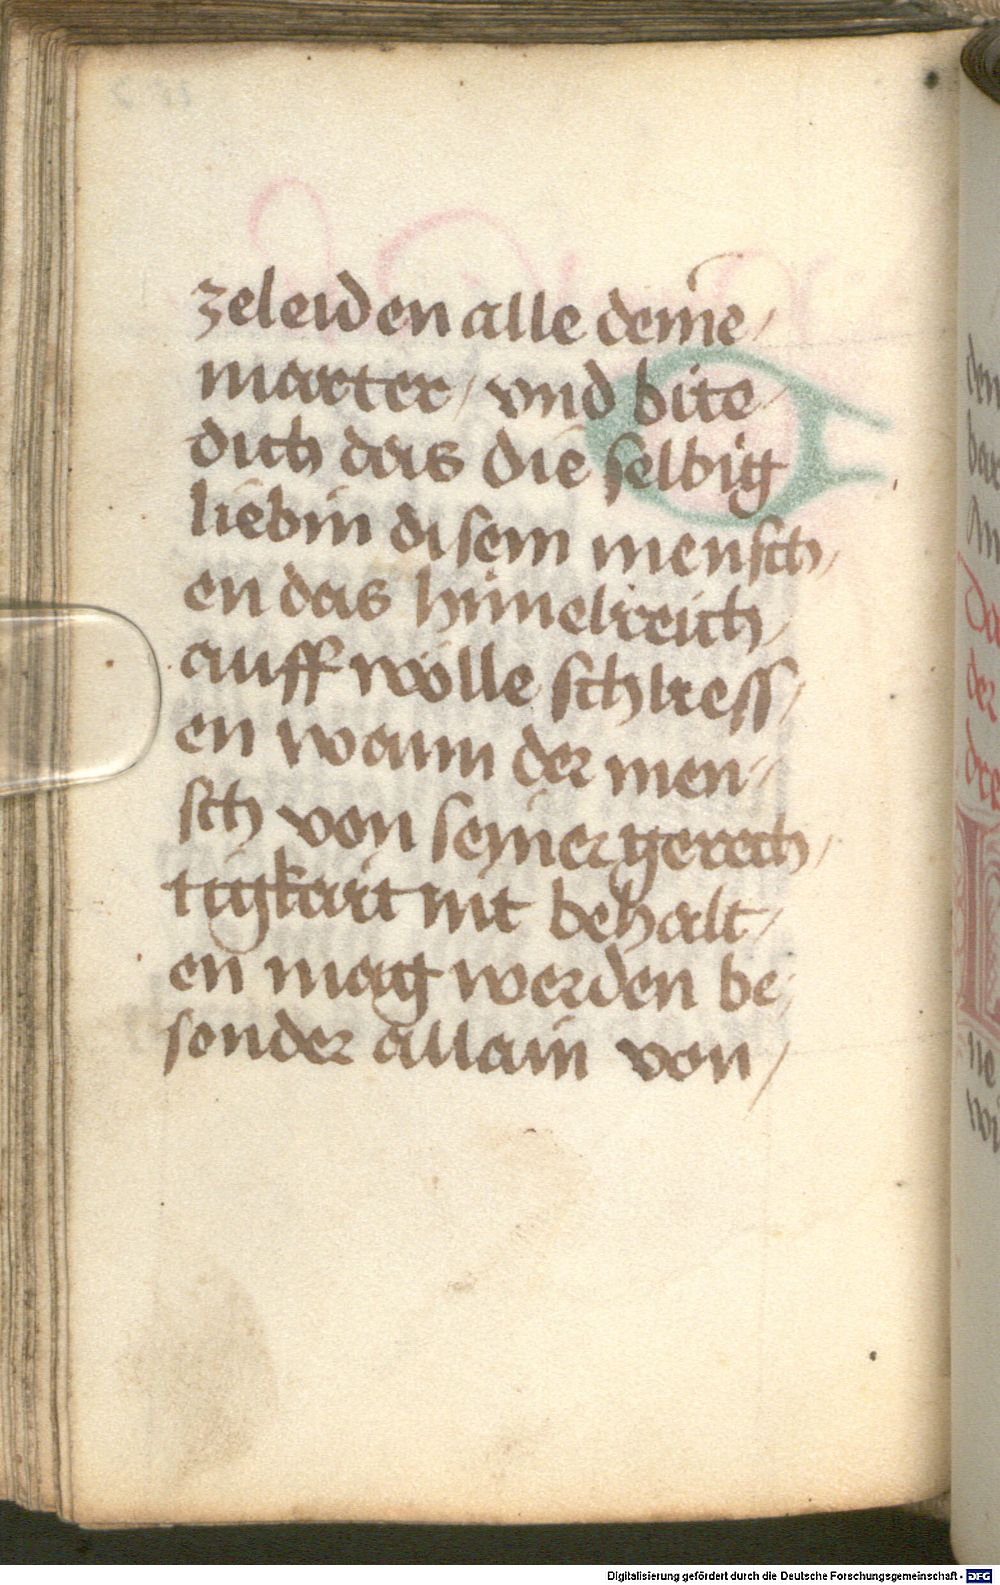 zeleiden alle deine /
marter / vnd bite
dich das die selbig
lieb in disem mensch /
en das himelreich /
auff wölle schliess /
en wann der men-
sch von seiner gerech /
tigkait nit behalt /
en mag werden be-
sonder allain von /
den
Da
der
ne
Digitalisierung gefördert durch die Deutsche Forschungsgemeinschaft - DFG